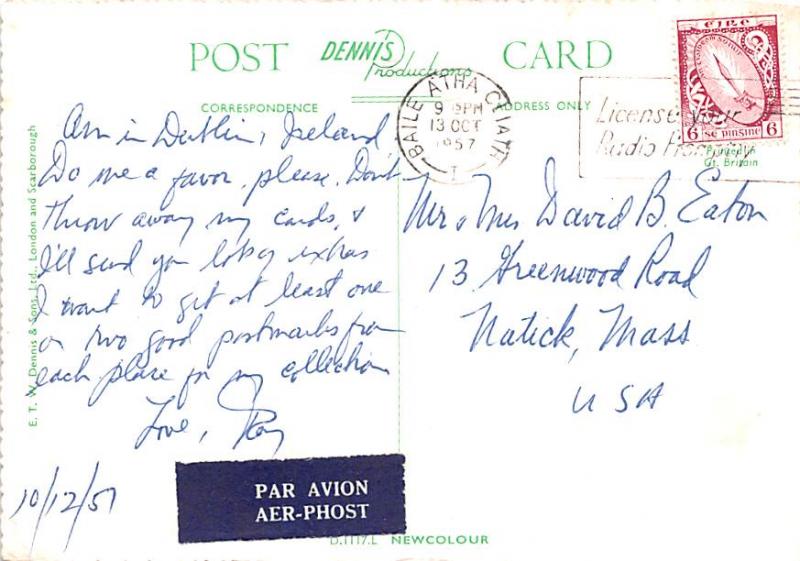 POST DENNIS Productions CARD
CORRESPONDENCE ADDRESS ONLY
EIRE
6 SE PINGINE 6
BAILE ÁTHA CLIATH
9 PM
13 OCT
1957
I
License your
Radio
Printed in
Gt. Britain
Am in Dublin, Ireland
Do me a favor, please. Don't
throw away my cards, &
I'll send you lots of extras
I want to get at least one
or two good postmarks from
each place for my collection
Love, Ray
10/12/57
Mr & Mrs David B. Eaton
13 Greenwood Road
Natick, Mass
USA
PAR AVION
AER-PHOST
D.1117.L NEWCOLOUR
E. T. W. Dennis & Sons, Ltd., London and Scarborough